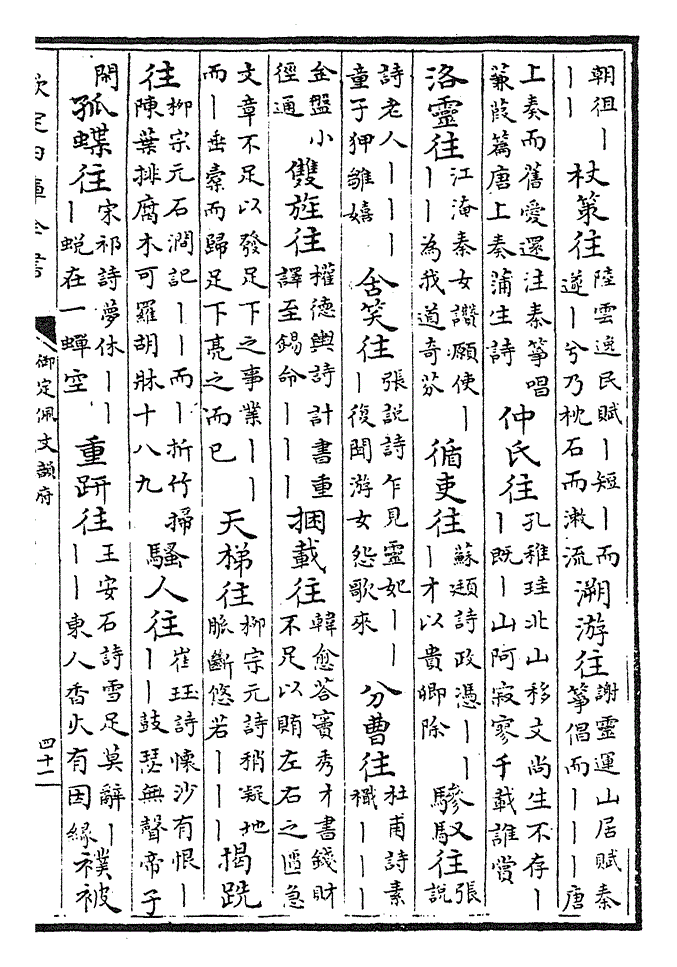 朝徂丨丨丨杖策往陸雲逸民賦丨短丨而遂丨兮乃枕石而漱流溯游往謝靈運山居賦秦箏倡而丨丨丨唐
上奏而舊愛還注秦箏唱蒹葭篇唐上奏蒲生詩仲氏往孔稚珪北山移文尚生不存丨丨既丨山阿寂寥千載誰賞
洛靈往江淹秦女讚願使丨丨丨為我道奇芬循吏往蘇頲詩政憑丨丨丨才以貴卿除驂馭往張說
詩老人丨丨丨童子狎雛嬉含笑往張說詩乍見靈妃丨丨丨復聞游女怨歌來分曹往杜甫詩素檝丨丨丨
金盤小徑通雙旌往權德輿詩計書重譯至錫命丨丨丨捆載往韓愈荅竇秀才書錢財不足以賄左右之匱急
文章不足以發足下之事業丨丨而丨垂槖而歸足下亮之而已天梯往柳宗元詩稍疑地脈斷悠若丨丨丨揭跣
往柳宗元石澗記丨丨而丨折竹掃陳葉排腐木可羅胡牀十八九騷人往崔珏詩懷沙有恨丨丨丨鼓瑟無聲帝子
閑孤蝶往宋祁詩夢休丨丨丨蛻在一蟬空重趼往王安石詩雪足莫辭丨丨丨東人香火有因緣襆被
欽定四庫全書
御定佩文韻府
四十二